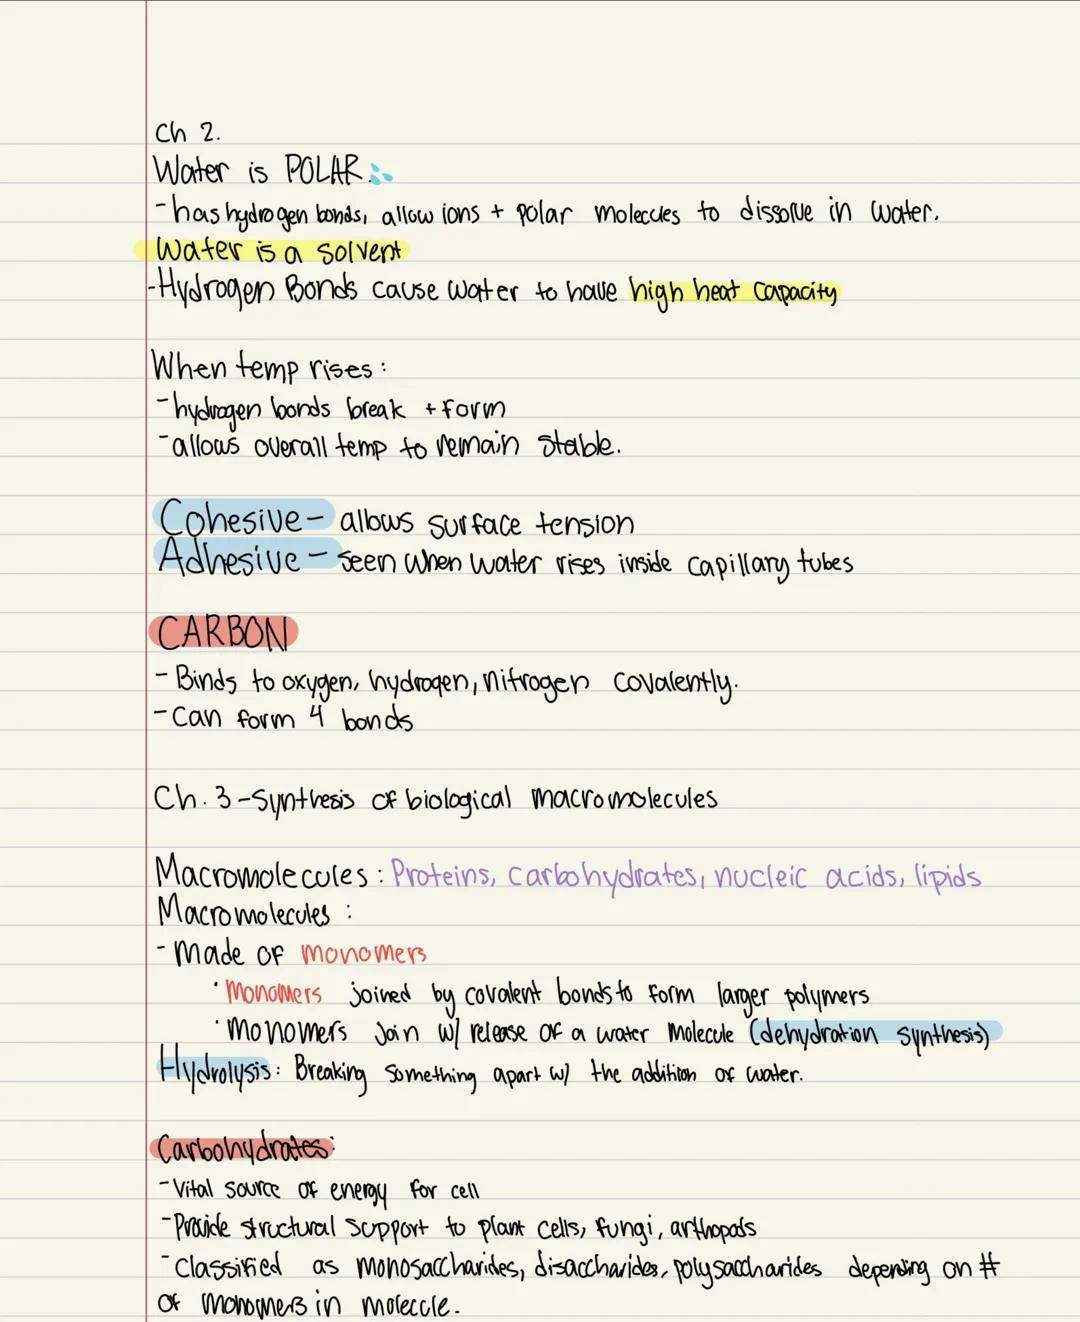 Ch 2.
Water is POLAR.
-has hydrogen bonds, allow ions + polar molecules to dissolve in water.
Water is a solvent
-Hydrogen Bonds cause water to have high heat capacity
When temp rises:
-hydrogen bonds break + form
-allows overall temp to remain stable.
Cohesive- allows surface tension
Adhesive - seen when water rises inside capillary tubes
CARBON
- Binds to oxygen, hydrogen, nitrogen covalently.
- Can form 4 bonds
Ch. 3 -Synthesis of biological macromolecules
Macromolecules: Proteins, carbohydrates, nucleic acids, lipids
Macromolecules:
- Made of monomers
· Monomers joined by covalent bonds to form larger polymers
· Monomers join w/ release of a water molecule (dehydration synthesis)
Hydrolysis: Breaking something apart w/ the addition of water.
Carbohydrates:
-Vital source of energy for cell
-Provide structural support to plant cells, fungi, arthopods
-Classified as monosaccharides, disaccharides, polysaccharides depending on #
of monomers in molecule.